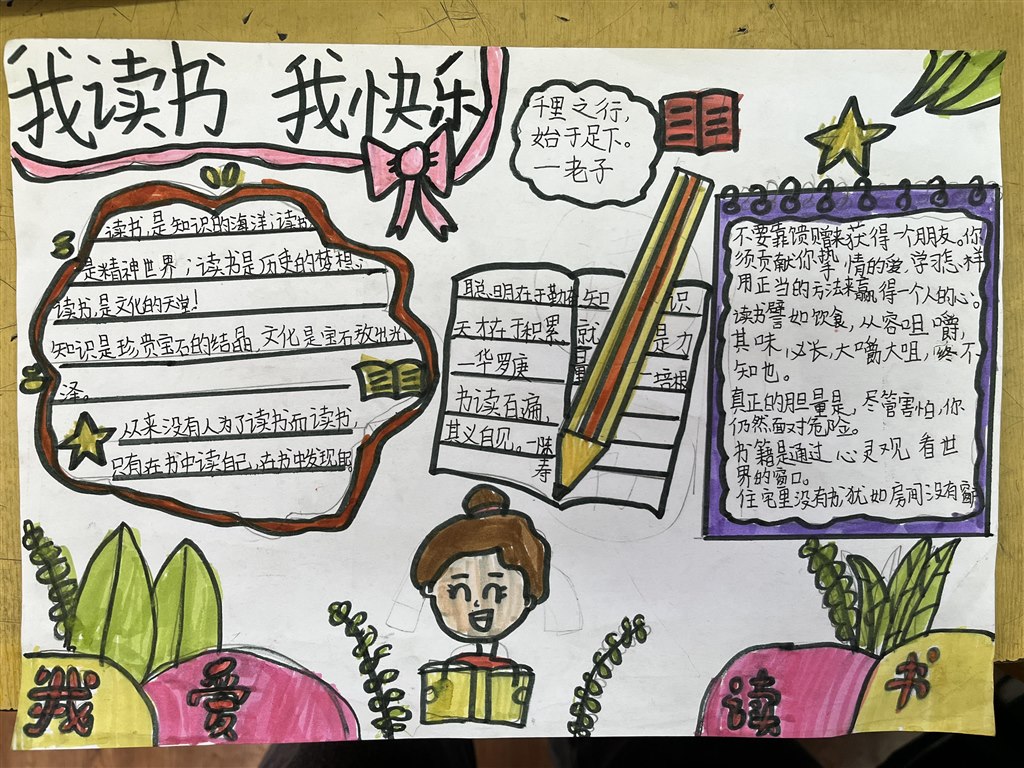 我读书 我快乐
千里之行,
始于足下。
一老子
读书,是知识的海洋;读
是精神世界;读书是历史的梦想;
读书,是文化的天堂!
知识是珍贵宝石的结晶,文化是宝石放出
泽。
从来没有人为了读书而读书,
只有在书中读自己,在书中发现
聪明在于勤
天才在于积累
一华罗庚
书读百遍,
其义自见。一陈寿
知 识
就 是力
量 一培根
不要靠馈赠来获得一个朋友。你
须贡献你挚情的爱,学习怎样
用正当的方法来赢得一个人的心。
读书譬如饮食,从容咀嚼,
其味必长,大嚼大咀,终不
知也。
真正的胆量是,尽管害怕,你
仍然面对危险。
书籍是通过心灵观看世
界的窗口。
住宅里没有书,犹如房间没有窗
我爱读书